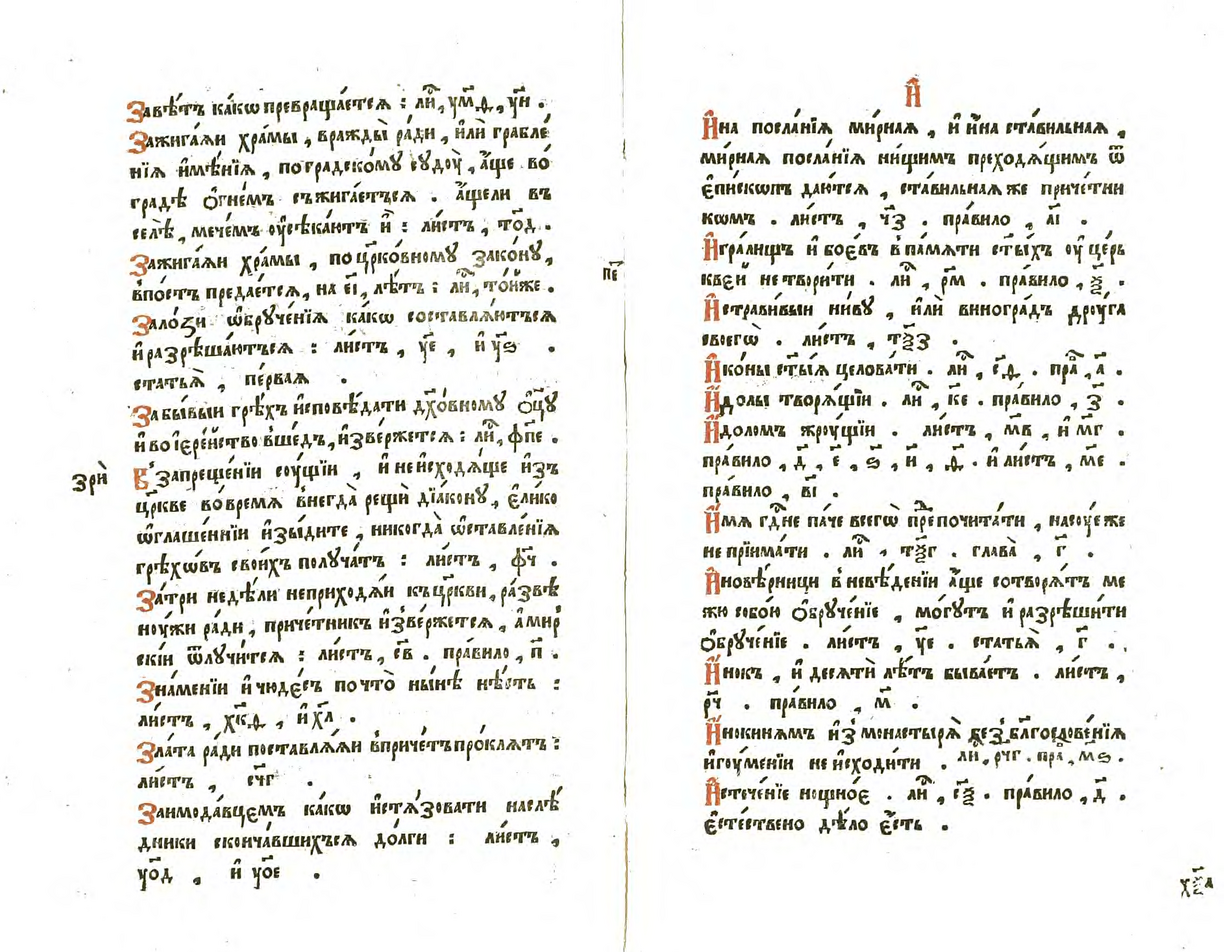 Завѣ́тъ ка́кѡ превраща́етсѧ : ли́ , ум҃ѳ , ун҃ .
Зажига́ѧи хра́мы , вражды̀ ра́ди , и҆лѝ грабле́
нїѧ и҆мѣ́нїѧ , по градско́му сꙋдоу̀ , а҆́ще во́
градѣ ѻ҆гне́мъ съжига́етьсѧ . а҆́щели въ
селѣ̀ , мече́мъ оу҆сѣка́ютъ и҆̀ : ли́стъ , то҃д .
Зажига́ѧи хра́мы , по цр҃ко́вному зако́нꙋ ,
впо́стъ предае́тсѧ , на є҃і , лѣ́тъ : ли́ , то́йже .
Зало́зи ѡ҆брꙋче́нїѧ ка́кѡ составлѧ́ютьсѧ
и҆ разрѣша́ютьсѧ : ли́стъ , у҃е , и҆ у҃ѕ .
статьѧ̀ , пе́рваѧ .
Забы́выи грѣ́хъ и҆сповѣ́дати дх҃о́вному ѻ҆ц҃ꙋ
и҆ во і҆ере́йство вше́дъ , и҆зве́ржетсѧ : ли́ , фп҃е .
зрѝ
В̾ запреще́нїи сꙋ́щїи , и҆ не и҆сходѧ́ще и҆зъ
цр҃кве во вре́мѧ внегда̀ рещѝ дїа́кону , є҆ли́ко
ѡ҆глаше́ннїи и҆зыди́те , никогда̀ ѡ҆ставле́нїѧ
грѣхѡ́въ свои́хъ полꙋча́тъ : ли́стъ , ф҃ч .
За три недѣ́ли не приходѧ́и къ цр҃кви , ра́звѣ
ноу́жи ра́ди , приче́тникъ и҆зве́ржетсѧ , а҆ мир
скїи ѿлꙋчи́тсѧ : ли́стъ , с҃в . пра́вило , п҃ .
Зна́менїи и҆ чюде́съ почто̀ ны́нѣ нѣ́сть :
ли́стъ , хк҃ѳ , и҆ х҃л .
Зла́та ра́ди поставлѧ́ѧи впричетъ про́клѧтъ :
ли́стъ , сч҃г .
Заимода́вцемъ ка́кѡ и҆стѧ́зовати наслѣ́
дники сконча́вшихъсѧ до́лги : ли́стъ ,
уо҃д , и҆ уо҃е .
п҃е
И҆
И҆́на посла́нїѧ ми́рнаѧ , и҆ и҆́на ста́вильнаѧ ,
ми́рнаѧ посла́нїѧ ни́щимъ преходѧ́щимъ ѿ
є҆пи́скопъ даю́тсѧ , ста́вильнаѧ же приче́тни
кѡмъ . ли́стъ , ч҃з . пра́вило , а҃і .
И҆гра́лищъ и҆ бое́въ в па́мѧти ст҃ы́хъ оу҆ це́рь
кве́й не твори́ти . ли́ , р҃м . пра́вило , ѯ҃ .
И҆страви́выи ни́ву , и҆лѝ виногра́дъ дрꙋ́га
своегѡ̀ . ли́стъ , тѯ҃з .
И҆ко́ны ст҃ы́ѧ целова́ти . ли́ , с҃ѳ . пра́ , а҃ .
И҆́долы творѧ́щїи . ли́ , к҃е . пра́вило , з҃ .
И҆́доломъ жрꙋ́щїи . ли́стъ , м҃в , и҆ м҃г .
пра́вило , д҃ , е҃ , ѕ҃ , и҃ , ѳ҃ . и҆ ли́стъ , м҃е .
пра́вило , в҃і .
И҆́мѧ гд҃не па́че всегѡ̀ препочита́ти , на сꙋ́е же
не прїима́ти . ли́ , тѯ҃г . глава̀ , г҃ .
И҆новѣ́рници в невѣ́денїи а҆́ще сотворѧ́тъ ме
жю собо́ю ѻ҆брꙋче́нїе , мо́гꙋтъ и҆ разрѣши́ти
ѻ҆брꙋче́нїе . ли́стъ , у҃е . статьѧ̀ , г҃ .
И҆́нокъ , и҆ десѧтѝ лѣ́тъ быва́етъ . ли́стъ ,
р҃ч . пра́вило , м҃ .
И҆́нокинѧмъ и҆з монастырѧ̀ без благослове́нїѧ
и҆гꙋ́менїи не и҆сходи́ти . ли́ , рч҃г . пра́ , м҃ѕ .
И҆стече́нїе нощно́е . ли́ , сѯ҃ . пра́вило , д҃ .
є҆сте́ствено дѣ́ло є҆́сть .